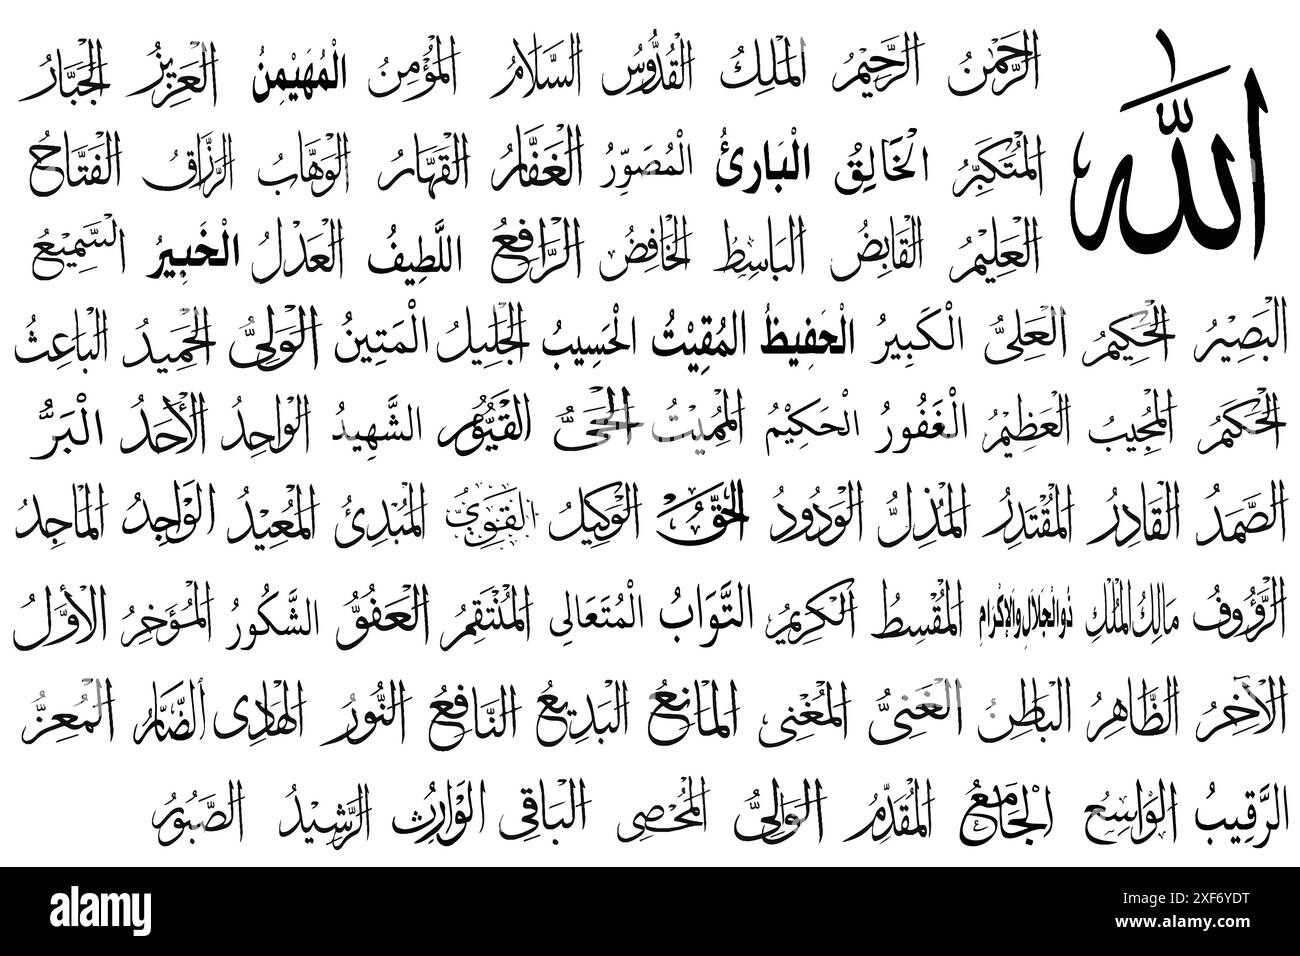 الله
الرَّحْمٰنُ الرَّحِيْمُ الْمَلِكُ الْقُدُّوْسُ السَّلَامُ الْمُؤْمِنُ الْمُهَيْمِنُ الْعَزِيْزُ الْجَبَّارُ
الْمُتَكَبِّرُ الْخَالِقُ الْبَارِئُ الْمُصَوِّرُ الْغَفَّارُ الْقَهَّارُ الْوَهَّابُ الرَّزَّاقُ الْفَتَّاحُ
الْعَلِيْمُ الْقَابِضُ الْبَاسِطُ الْخَافِضُ الرَّافِعُ اللَّطِيفُ الْعَدْلُ الْخَبِيرُ السَّمِيْعُ
الْبَصِيْرُ الْحَكِيْمُ الْعَلِىُّ الْكَبِيْرُ الْحَفِيظُ الْمُقِيْتُ الْحَسِيبُ الْجَلِيلُ الْمَتِينُ الْوَلِىُّ الْحَمِيدُ الْبَاعِثُ
الْحَكَمُ الْمُجِيبُ الْعَظِيْمُ الْغَفُورُ الْحَكِيْمُ الْمُمِيْتُ الْحَىُّ الْقَيُّوْمُ الشَّهِيدُ الْوَاحِدُ الْأَحَدُ الْبَرُّ
الصَّمَدُ الْقَادِرُ الْمُقْتَدِرُ الْمُذِلُّ الْوَدُودُ الْحَقُّ الْوَكِيْلُ الْقَوِيُّ الْمُبْدِئُ الْمُعِيْدُ الْوَاجِدُ الْمَاجِدُ
الرَّؤُوفُ مَالِكُ الْمُلْكِ ذُو الْجَلَالِ وَالْإِكْرَامِ الْمُقْسِطُ الْكَرِيْمُ التَّوَّابُ الْمُتَعَالِى الْمُنْتَقِمُ الْعَفُوُّ الشَّكُورُ الْمُؤَخِّرُ الْأَوَّلُ
الْآخِرُ الظَّاهِرُ الْبَاطِنُ الْغَنِىُّ الْمُغْنِى الْمَانِعُ الْبَدِيعُ النَّافِعُ النُّورُ الْهَادِى الضَّارُّ الْمُعِزُّ
الرَّقِيبُ الْوَاسِعُ الْجَامِعُ الْمُقَدِّمُ الْوَالِىُّ الْمُحْصِى الْبَاقِى الْوَارِثُ الرَّشِيْدُ الصَّبُوْرُ
alamy
Image ID: 2XF6YDT
www.alamy.com